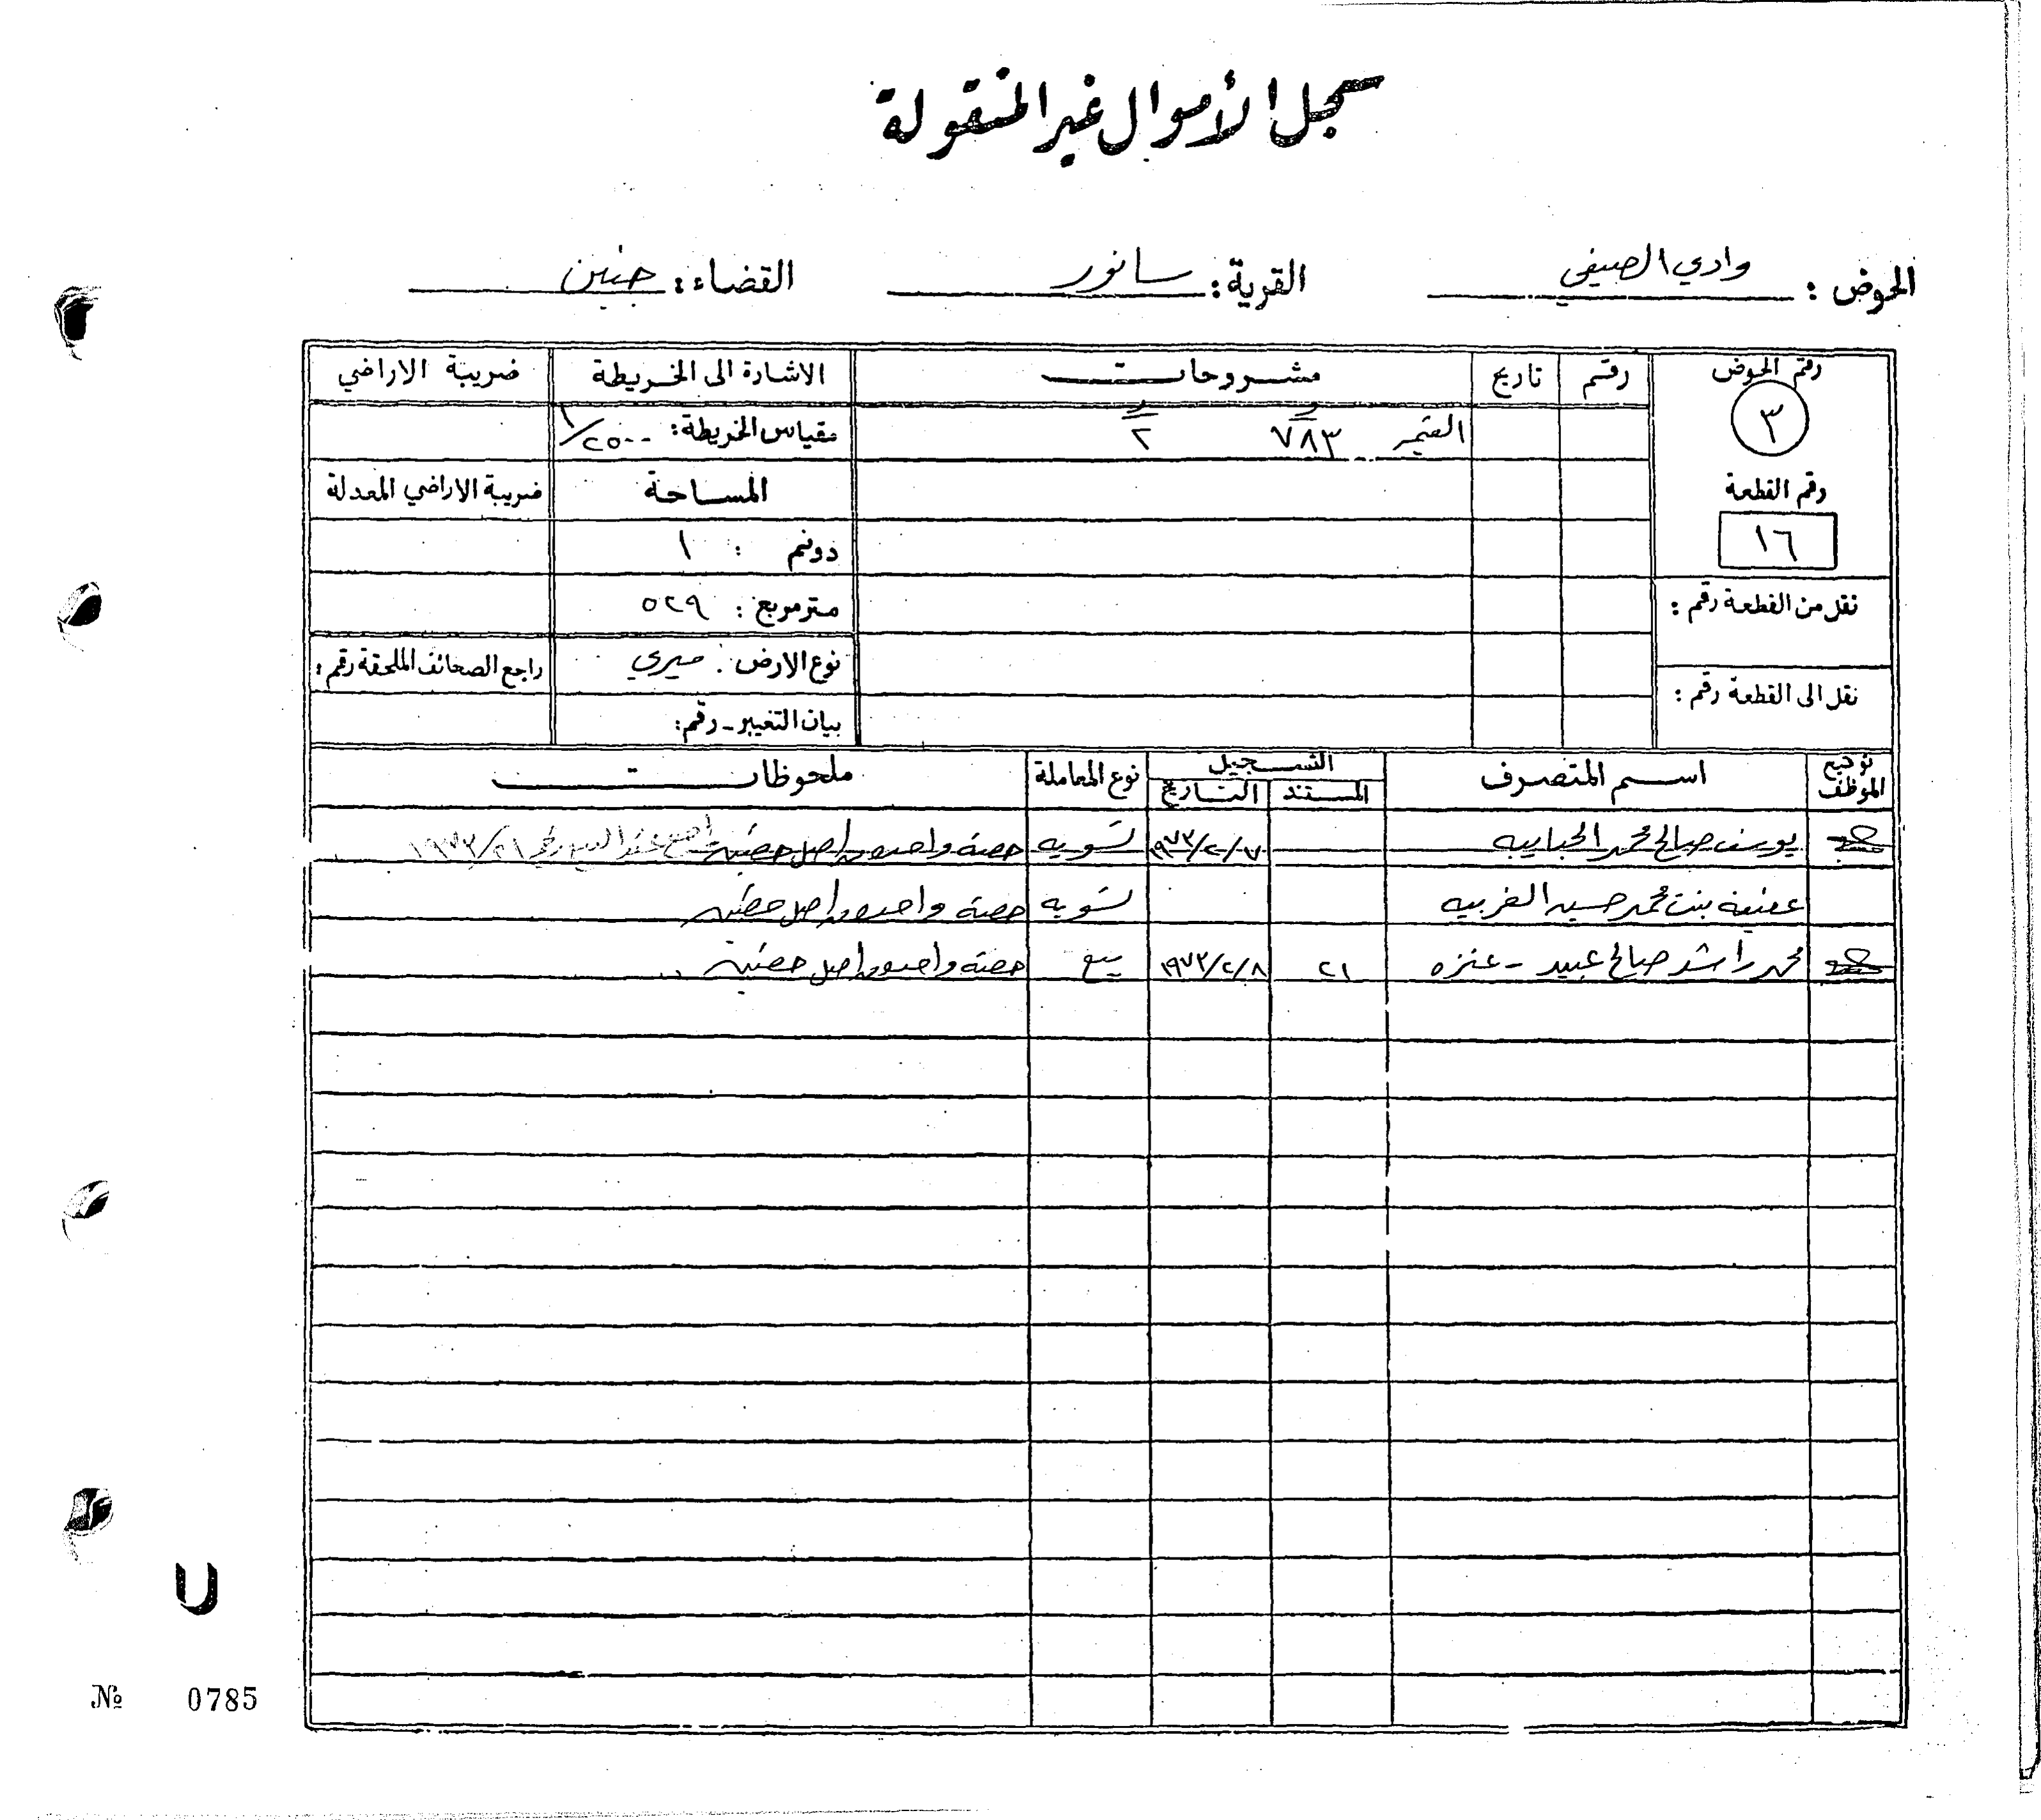 سجل الأموال غير المنقولة
الحوض : وادي الصيفي القرية : سانور القضاء : جنين
رقم الحوض رقم تاريخ مشروحات الاشارة الى الخريطة ضريبة الاراضي
٣ ٧٨٣ ٢ مقياس الخريطة : ١/٢٥٠٠
رقم القطعة المساحة ضريبة الاراضي المعدلة
١٦ دونم : ١
نقل من القطعة رقم : متر مربع : ٥٢٩
نوع الارض : ميري راجع الصحائف الملحقة رقم :
نقل الى القطعة رقم : بيان التغيير - رقم :
توقيع الموظف اسم المتصرف التسجيل نوع المعاملة ملحوظات
المستند التاريخ
يوسف صالح محمد الحبايبه ١٩٧٣/٢/٧ تسويه حصة واحده من اصل حصتين
عفيفه بنت محمد حسين الغربيه تسويه حصة واحده من اصل حصتين
محمد راشد صالح عبيد - عنزه ٢١ ١٩٧٣/٢/٨ بيع حصة واحده من اصل حصتين
№ 0785